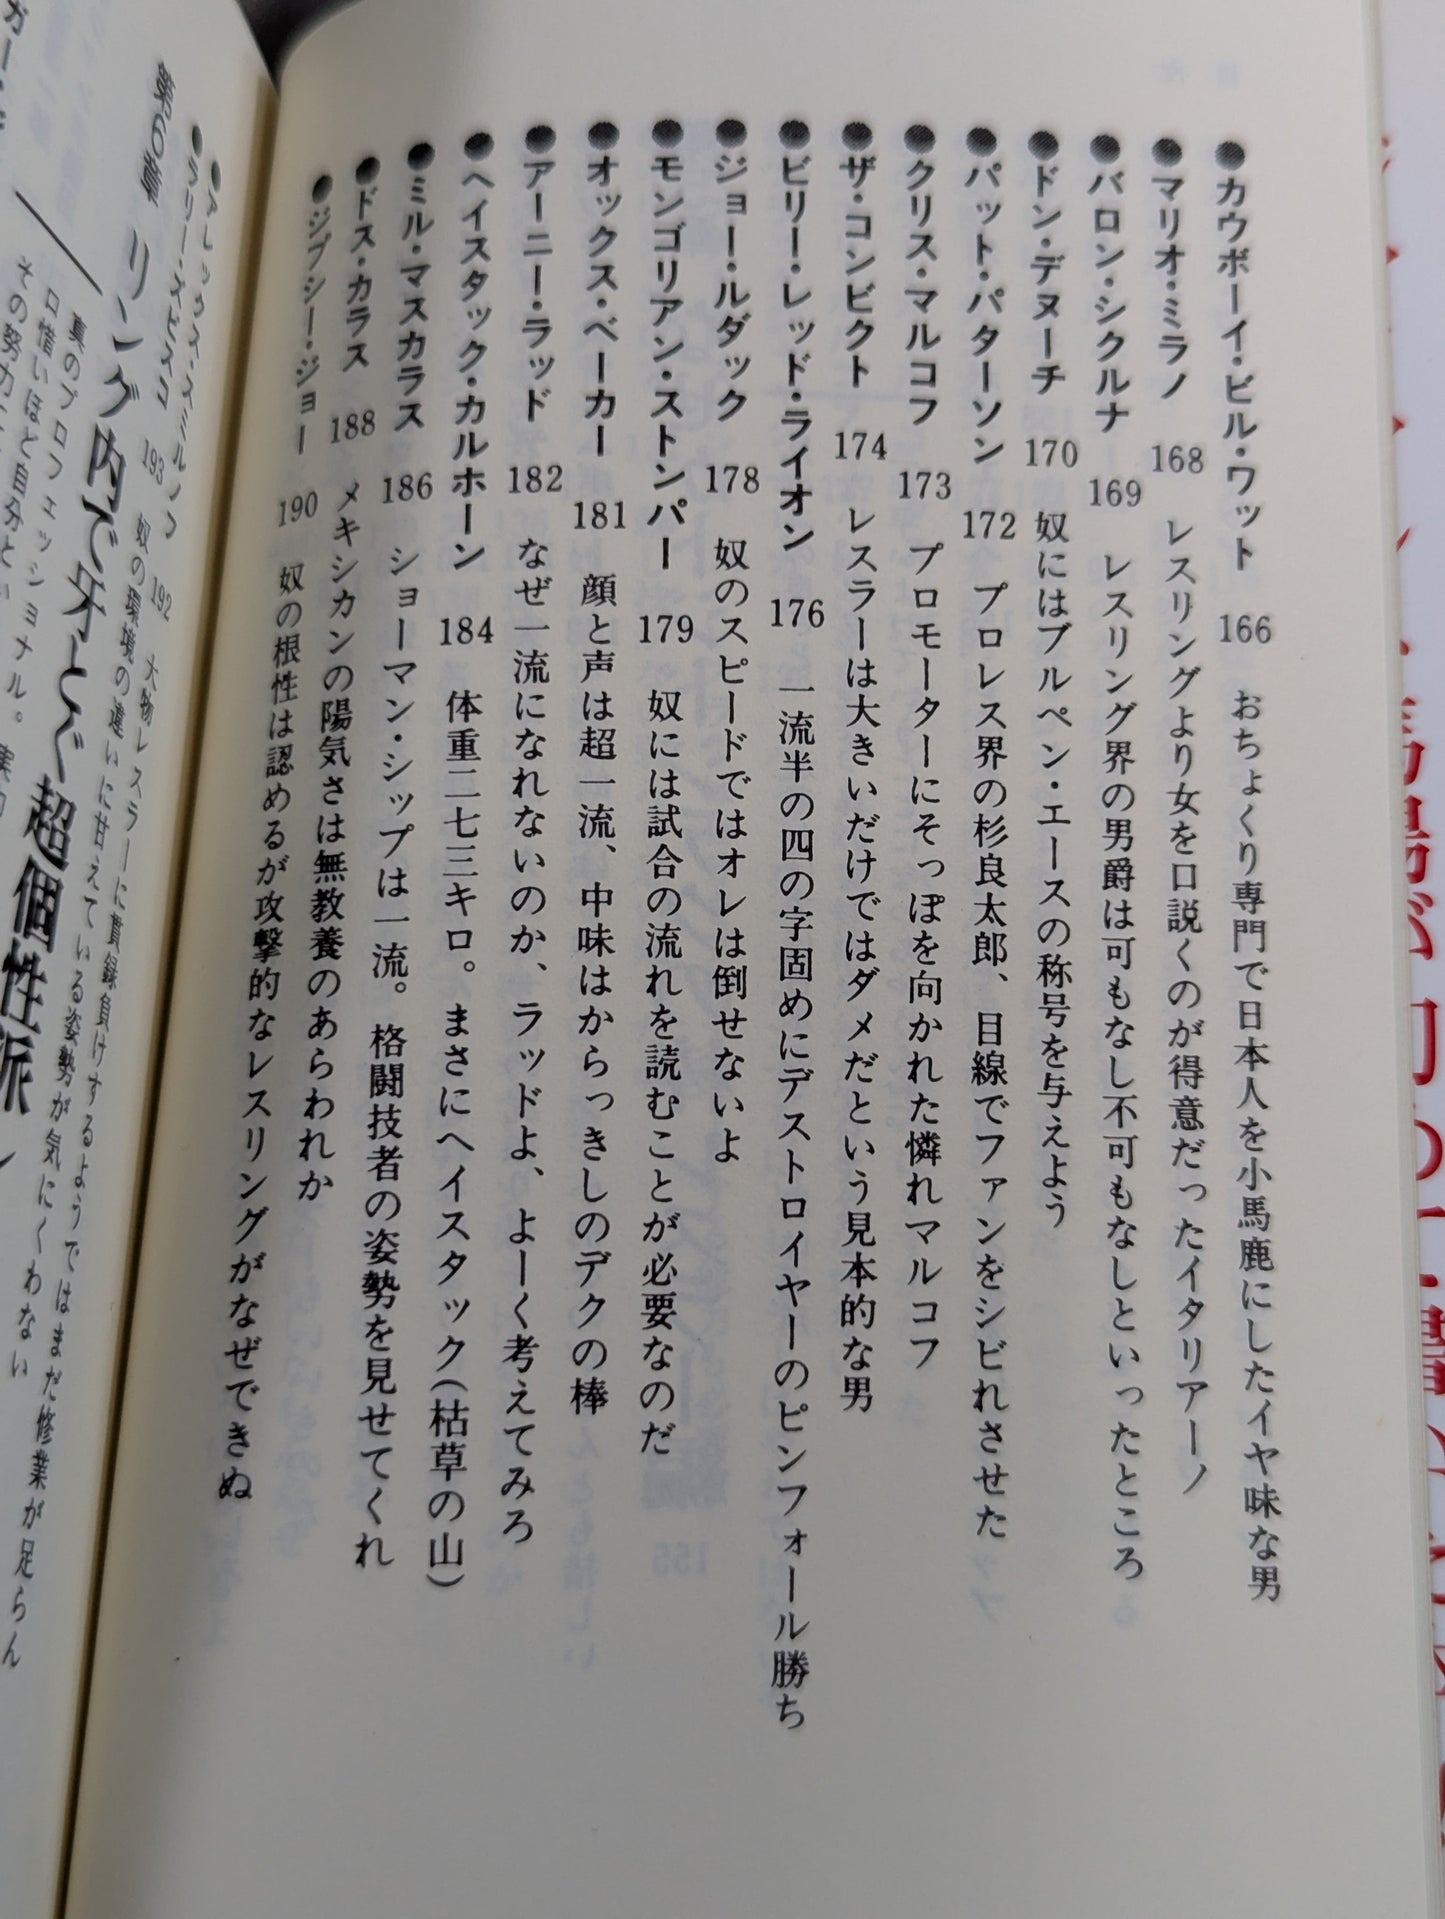 ●カウボーイ・ビル・ワット 166 おちょくり専門で日本人を小馬鹿にしたイヤ味な男
●マリオ・ミラノ 168 レスリングより女を口説くのが得意だったイタリアーノ
●バロン・シクルナ 169 レスリング界の男爵は可もなし不可もなしといったところ
●ドン・デヌーチ 170 奴にはブルペン・エースの称号を与えよう
●パット・パターソン 172 プロレス界の杉良太郎、目線でファンをシビれさせた
●クリス・マルコフ 173 プロモーターにそっぽを向かれた憐れマルコフ
●ザ・コンビクト 174 レスラーは大きいだけではダメだという見本的な男
●ビリー・レッド・ライオン 176 一流半の四の字固めにデストロイヤーのピンフォール勝ち
●ジョー・ルダック 178 奴のスピードではオレは倒せないよ
●モンゴリアン・ストンパー 179 奴には試合の流れを読むことが必要なのだ
●オックス・ベーカー 181 顔と声は超一流、中味はからっきしのデクの棒
●アーニー・ラッド 182 なぜ一流になれないのか、ラッドよ、よーく考えてみろ
●ヘイスタック・カルホーン 184 体重二七三キロ。まさにヘイスタック(枯草の山)
●ミル・マスカラス 186 ショーマン・シップは一流。格闘技者の姿勢を見せてくれ
●ドス・カラス 188 メキシカンの陽気さは無教養のあらわれか
●ジプシー・ジョー 190 奴の根性は認めるが攻撃的なレスリングがなぜできぬ
●アレックス・スミルノフ 192 大物レスラーに貫録負けするようではまだ修業が足らん
●ラリー・ズビスコ 193 奴の環境の違いに甘えている姿勢が気にくわない
第6章 リング内で牙とぐ超個性派
真のプロフェッショナル。
口惜いほど自分とい
その努力